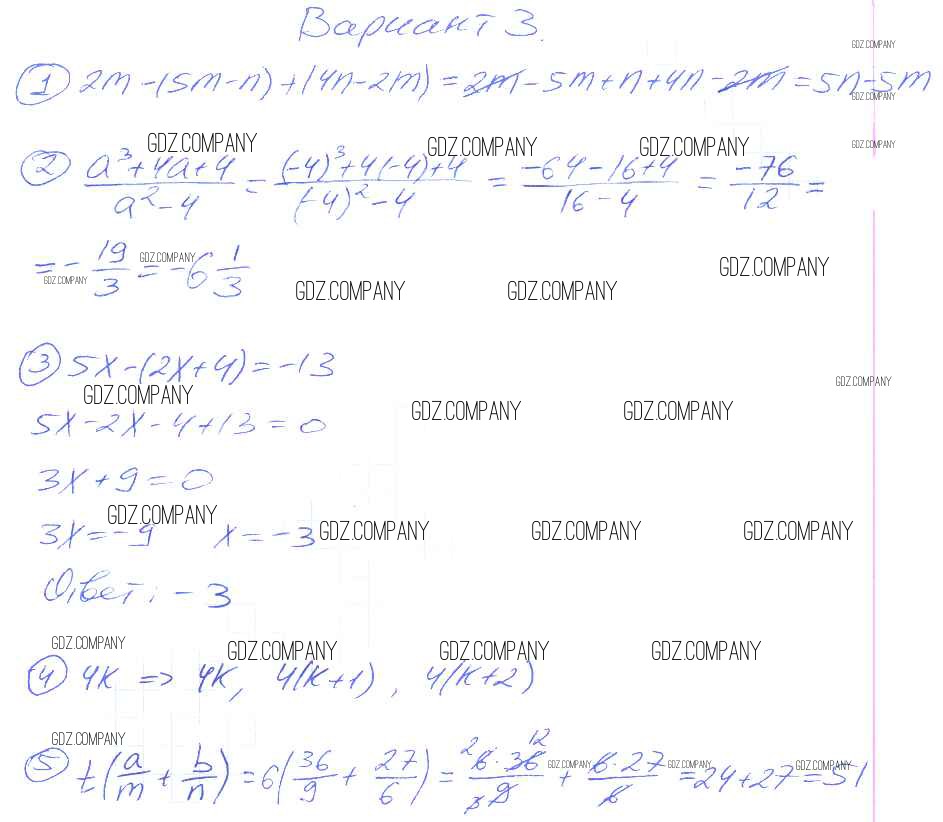 Вариант 3.
GDZ.COMPANY
① 2m-(5m-n)+(4n-2m)=2m-5m+n+4n-2m=5n-5m
GDZ.COMPANY
GDZ.COMPANY GDZ.COMPANY GDZ.COMPANY GDZ.COMPANY
② (a³+4a+4)/(a²-4) = ((-4)³+4(-4)+4)/((-4)²-4) = (-64-16+4)/(16-4) = (-76)/12 =
= -19/3 = -6 1/3
GDZ.COMPANY GDZ.COMPANY GDZ.COMPANY
GDZ.COMPANY GDZ.COMPANY
③ 5x-(2x+4)=-13
GDZ.COMPANY
GDZ.COMPANY GDZ.COMPANY GDZ.COMPANY
5x-2x-4+13=0
3x+9=0
GDZ.COMPANY
3x=-9 x=-3
GDZ.COMPANY GDZ.COMPANY GDZ.COMPANY
Ответ: -3
GDZ.COMPANY GDZ.COMPANY GDZ.COMPANY GDZ.COMPANY
④ 4k => 4k, 4(k+1), 4(k+2)
GDZ.COMPANY
⑤ t(a/m + b/n) = 6(36/9 + 27/6) = 2 6·36 12/3 9 + 6·27/6 = 24+27=51
GDZ.COMPANY GDZ.COMPANY GDZ.COMPANY